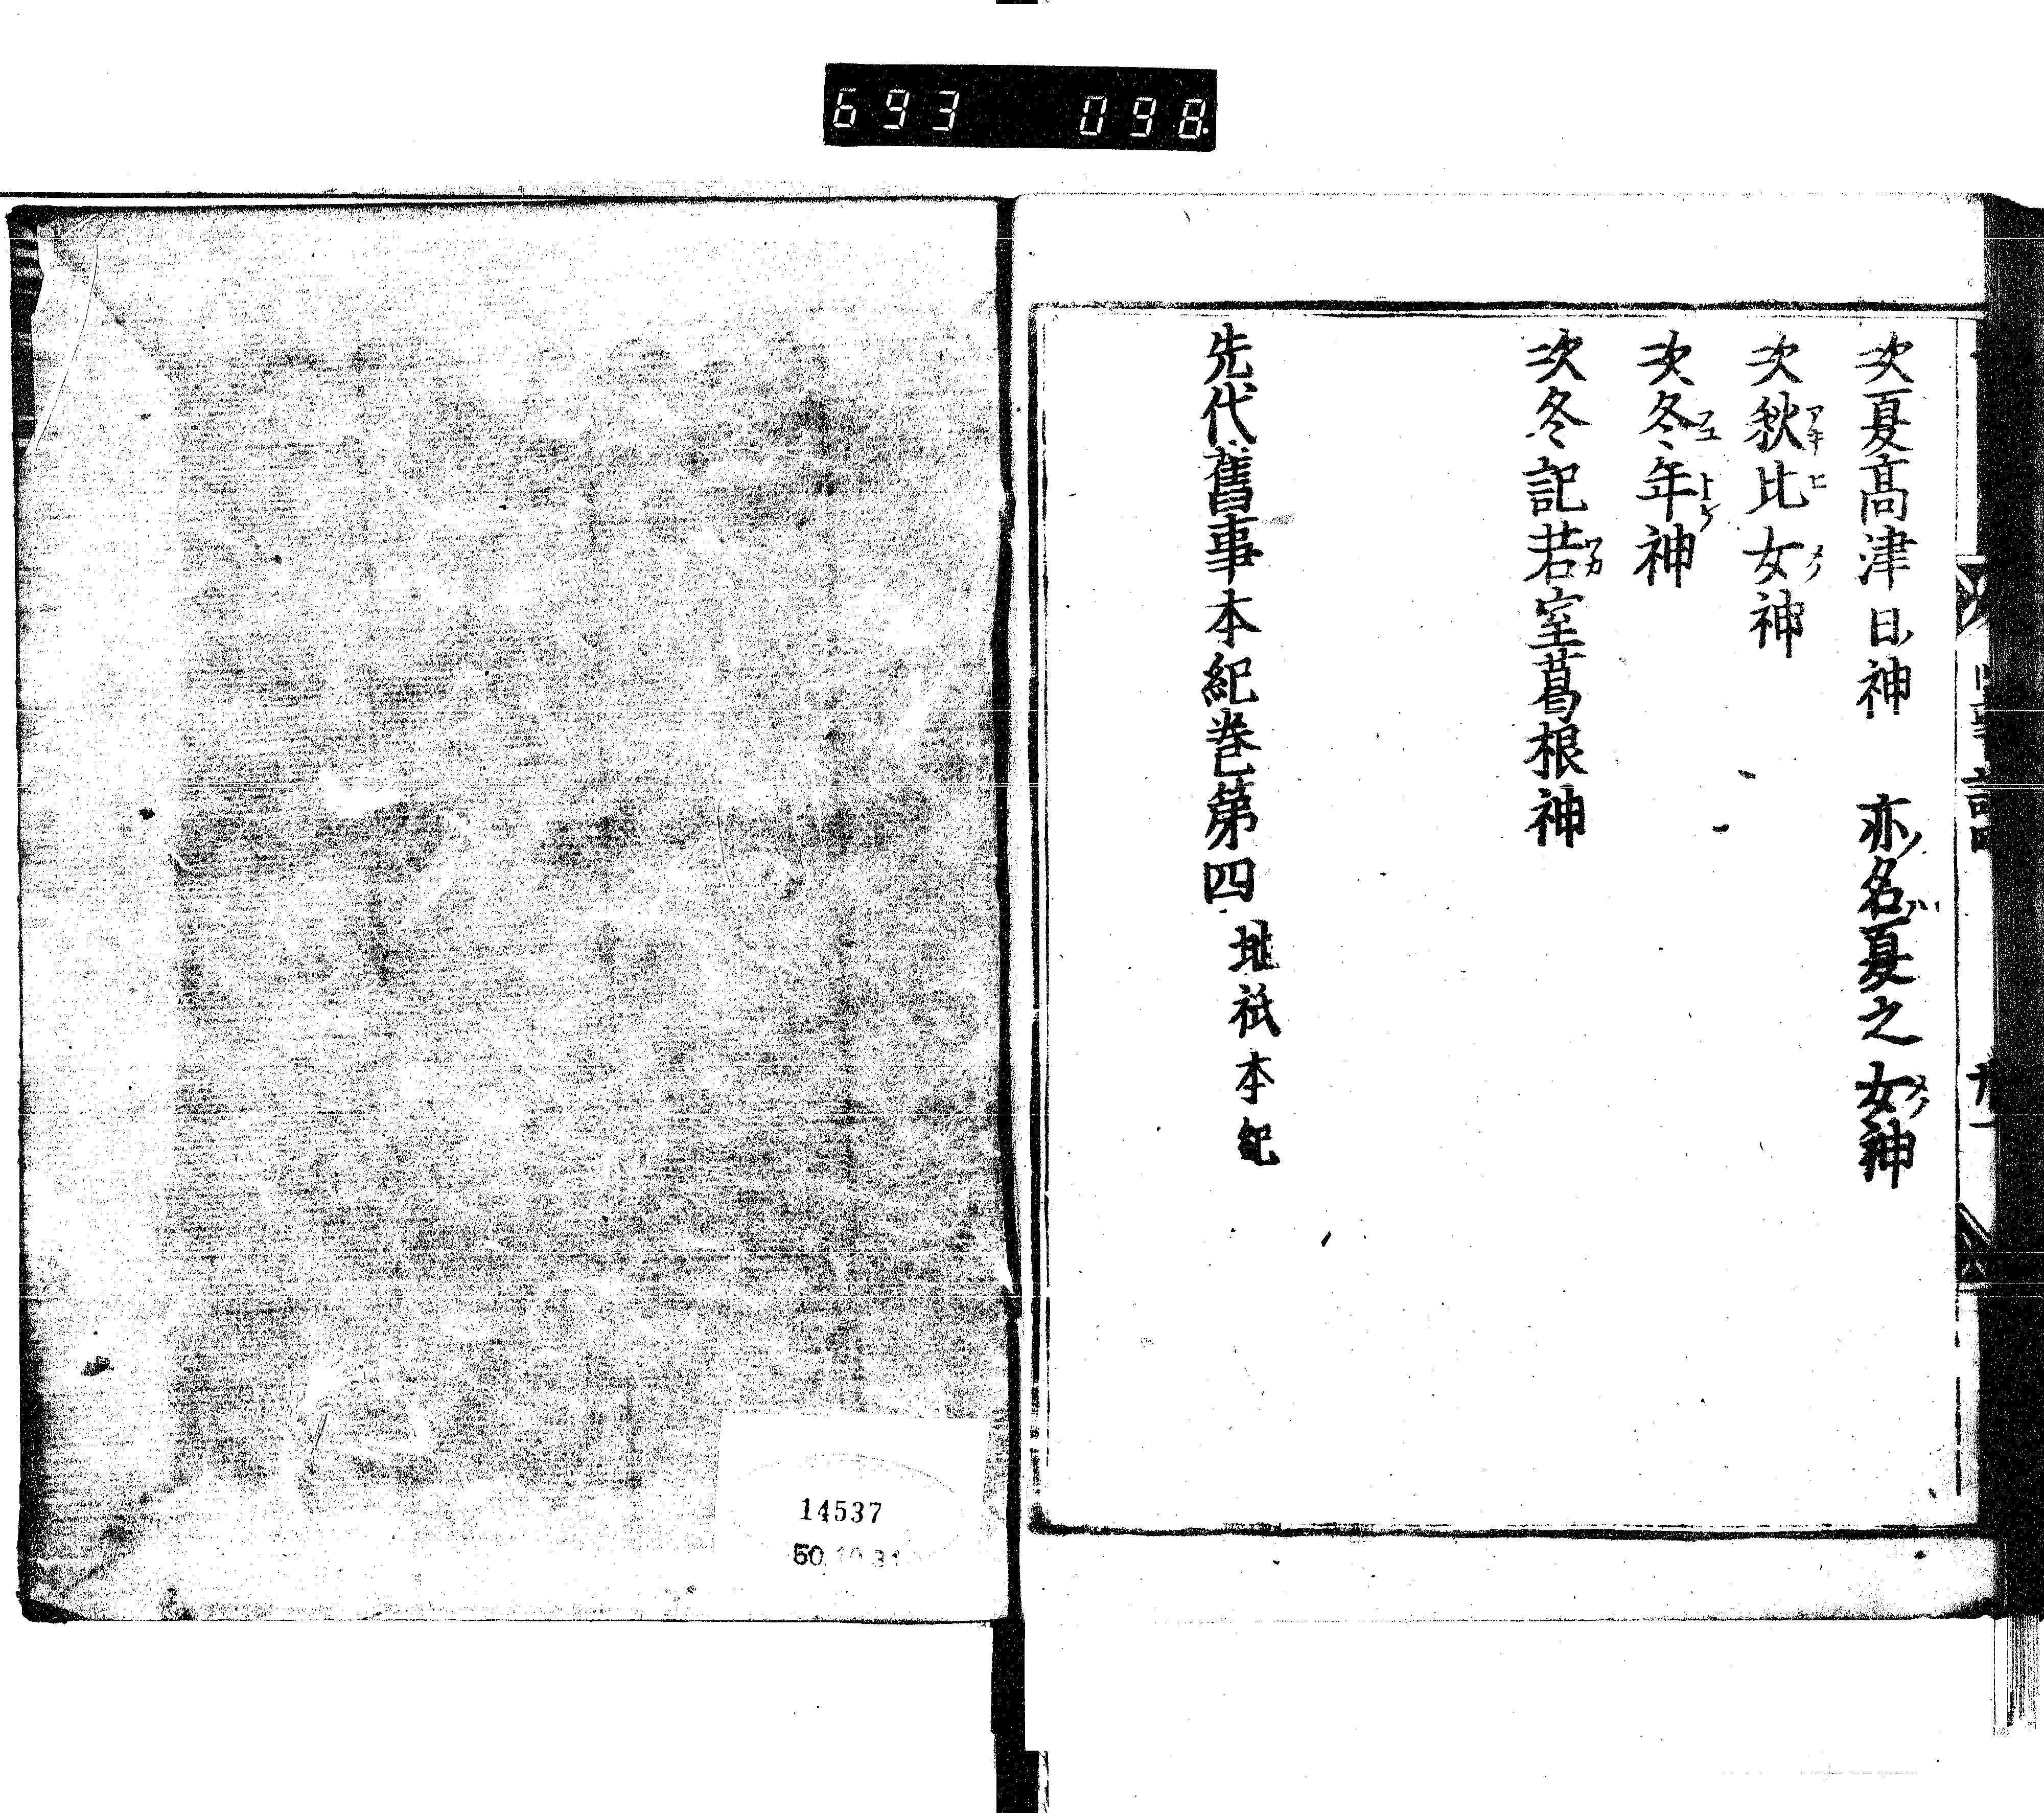 693 098
次夏高津日神 亦名夏之女神
次秋比女神
次冬年神
次冬記若室葛根神
先代舊事本紀巻第四 地祇本紀
14537
50.10.31